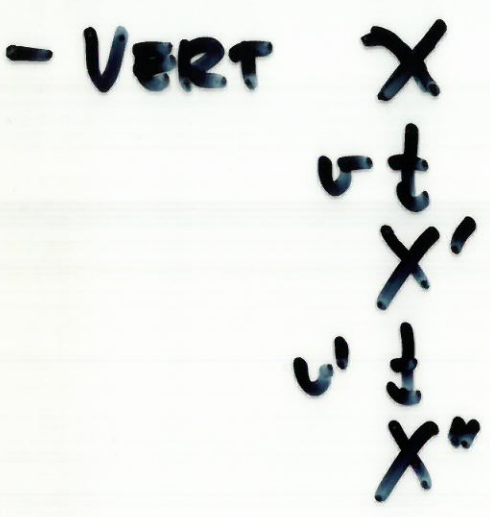 - VERT X
v t
X'
v' t
X"